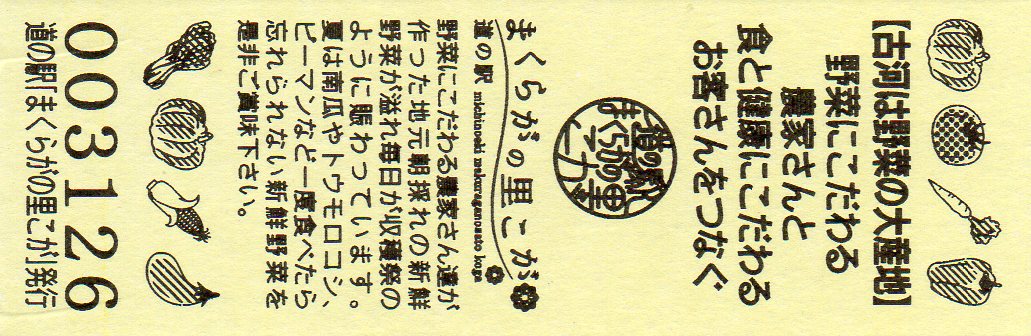 【古河は野菜の大産地】
野菜にこだわる
農家さんと
食と健康にこだわる
お客さんをつなぐ
道の駅
まくらがの里
こが
まくらがの里こが
道の駅 michinoeki makuraganosato koga
野菜にこだわる農家さん達が
作った地元朝採れの新鮮
野菜が溢れ毎日が収穫祭の
ように賑わっています。
夏は南瓜やトウモロコシ、
ピーマンなど一度食べたら
忘れられない新鮮野菜を
是非ご賞味下さい。
003126
道の駅「まくらがの里こが」発行